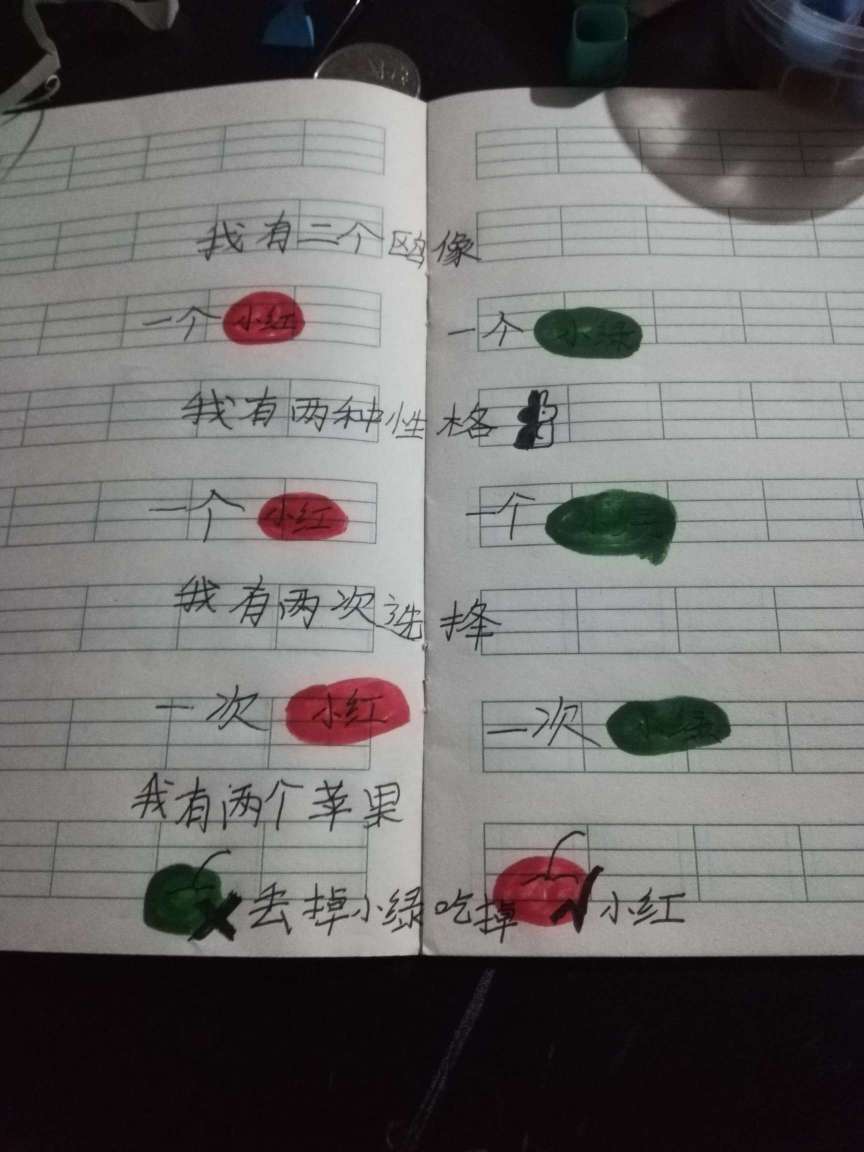 我有二个欧像
一个 小红 一个 小绿
我有两种性格
一个 小红 一个
我有两次选择
一次 小红 一次 小绿
我有两个苹果
丢掉小绿吃掉 小红